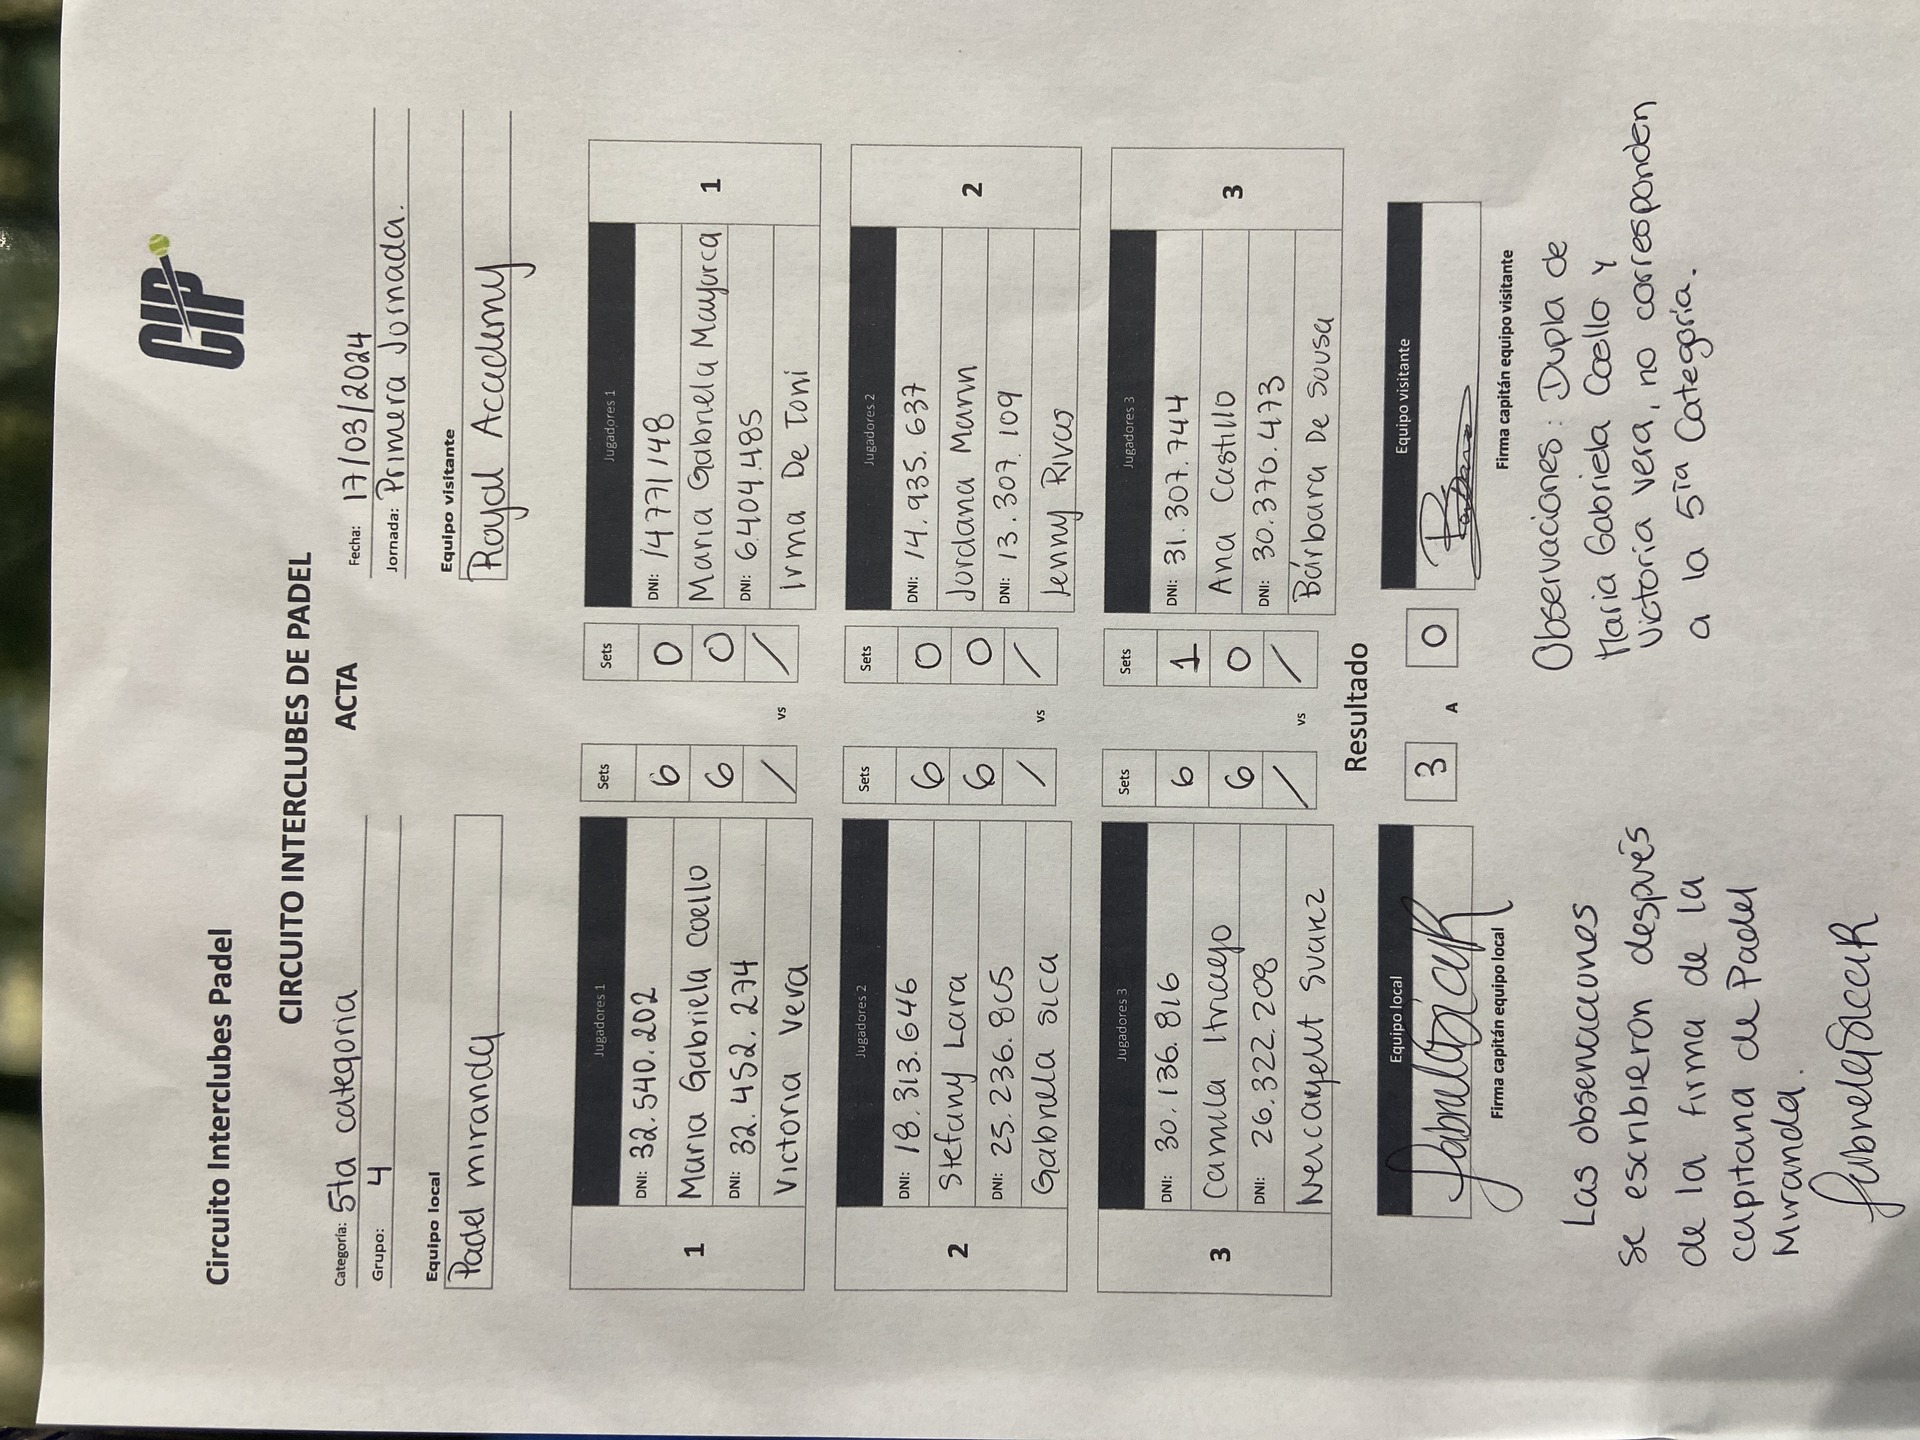 Circuito Interclubes Padel
CIP
CIRCUITO INTERCLUBES DE PADEL
ACTA
Categoria: 5ta categoria
Fecha: 17/03/2024
Grupo: 4
Jornada: Primera Jornada.
Equipo local
Equipo visitante
Padel miranda
Royal Academy
Jugadores 1
Sets
Sets
Jugadores 1
DNI: 32.540.202
6
0
DNI: 14771148
1
Maria Gabriela Coello
6
0
Maria Gabriela Mayurca
1
DNI: 32.452.274
/
/
DNI: 6.404.485
Victoria Vera
vs
Irma De Toni
Jugadores 2
Sets
Sets
Jugadores 2
DNI: 18.313.646
6
0
DNI: 14.935.637
2
Stefany Lara
6
0
Jordana Mann
2
DNI: 25.236.805
/
/
DNI: 13.307.109
Gabriela Sica
vs
Jenny Rivas
Jugadores 3
Sets
Sets
Jugadores 3
DNI: 30.136.816
6
1
DNI: 31.307.744
3
Camila Itriago
6
0
Ana Castillo
3
DNI: 26.322.208
/
/
DNI: 30.370.473
Suarez
vs
Bárbara De Sousa
Resultado
Equipo local
3
A
0
Equipo visitante
Firma capitán equipo local
Firma capitán equipo visitante
Observaciones: Dupla de
Maria Gabriela Coello y
Victoria vera, no corresponden
a la 5ta Categoría.
Las observaciones
se escribieron después
de la firma de la
capitana de Padel
Miranda.